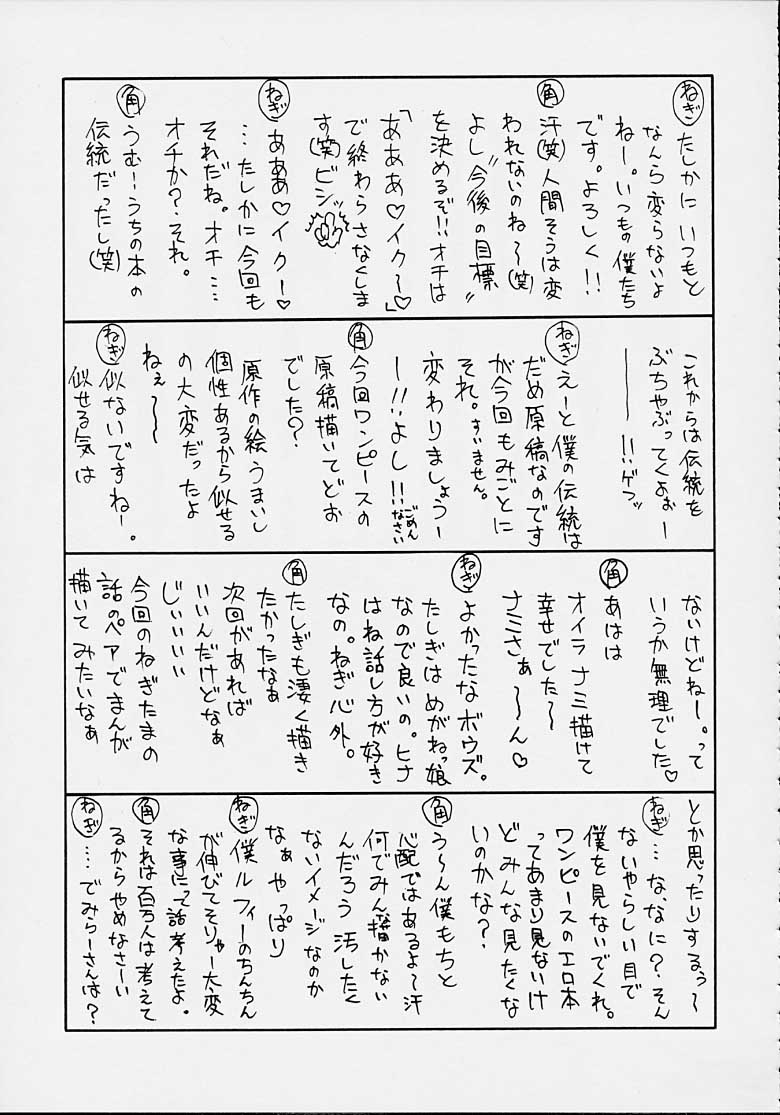 ねぎ たしかにいつもと
なんら変らないよ
ねー。いつもの僕たち
です。よろしく!!
角 汗(笑)人間そうは変
われないのね〜(笑)
よし“今後の目標”
を決めるぞ!!オチは
「あああ♡イク〜♡」
で終わらさなくしま
す(笑)ビシッ
ねぎ あああ♡イクー♡
…たしかに今回も
それだね。オチ…
オチか?それ。
角 うむーうちの本の
伝統だったし(笑)
これからは伝統を
ぶちゃぶってくよぉー
ーーー!!ゲフッ
ねぎ えーと僕の伝統は
だめ原稿なのです
が今回もみごとに
それ。すいません。
変わりましょうー
ー!!よし!!ごめんなさい
角 今回ワンピースの
原稿描いてどお
でした?
原作の絵うまいし
個性あるから似せる
の大変だったよ
ねぇ〜〜
ねぎ 似ないですねー。
似せる気は
ないけどねー。って
いうか無理でした♡
角 あはは
オイラナミ描けて
幸せでした〜
ナミさぁ〜〜ん♡
ねぎ よかったなボウズ。
たしぎはめがねっ娘
なので良いの。ヒナ
はね話し方が好き
なの。ねぎ心外。
角 たしぎも凄く描き
たかったなぁ
次回があれば
いいんだけどなぁ
じぃぃぃぃ
今回のねぎたまの
話のペアでまんが
描いてみたいなぁ
とか思ったりするぅ〜
ねぎ …な、なに?そん
ないやらしい目で
僕を見ないでくれ。
ワンピースのエロ本
ってあまり見ないけ
どみんな見たくな
いのかな?
角 う〜ん僕もちと
心配ではあるよ〜汗
何でみん描かない
んだろう汚したく
ないイメージなのか
なぁやっぱり
ねぎ 僕ルフィーのちんちん
が伸びてそりゃー大変
な事にって話考えたよ。
角 それは百万人は考えて
るからやめなさーい
ねぎ …でみらーさんは?